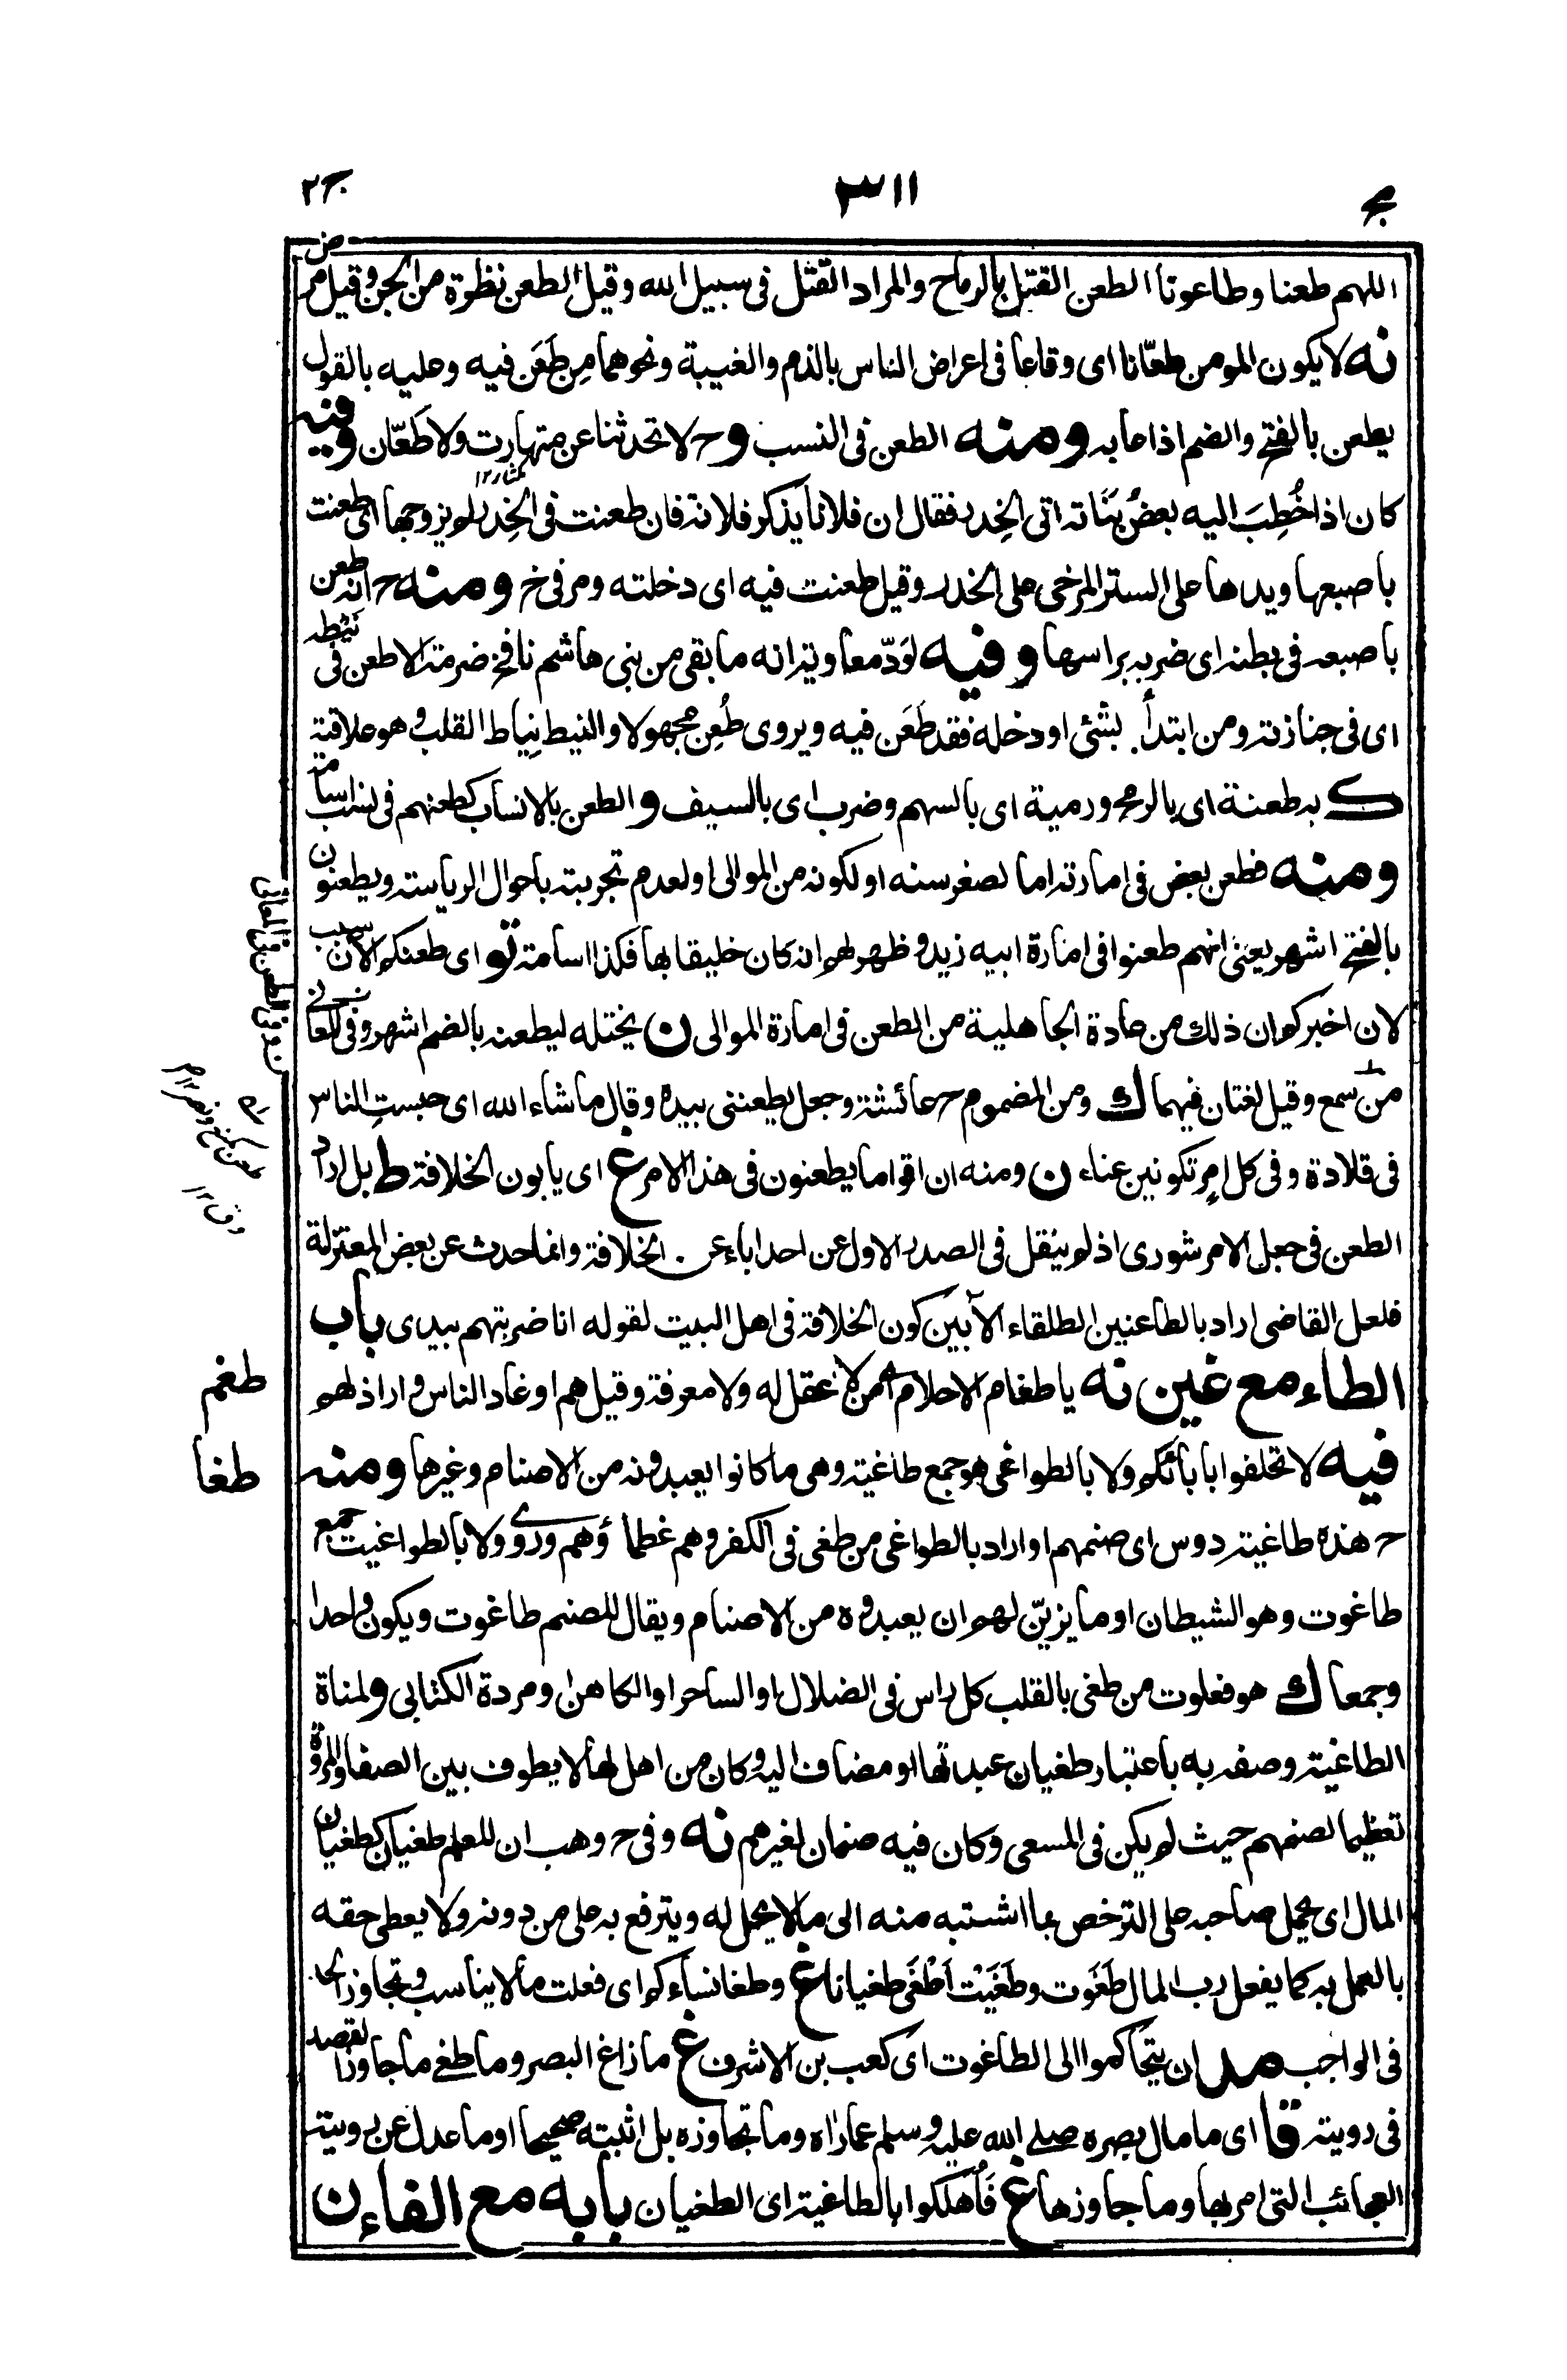 ٣١١
اللهم طعنا وطاعونا الطعن القتل بالرماح والمراد القتل فى سبيل الله وقيل الطعن نظرة من الجن وقيل مر
نه لا يكون المومن طعّانا اى وقاعا فى اعراض الناس بالذم والغيبة ونحوهما مِن طَعَن فيه وعليه بالقول
يطعن بالفتح والضم اذا عابه ومنه الطعن فى النسب و ح لا تحدثنا عن متهارت ولا طَعّان وفيه
كان اذا خُطِبَ اليه بعضُ بَنَاته اتى الخِدر فقال ان فلانا يذكر فلانة فان طعنت فى الخِدر لم يزوجها اى طعنت
باصبعها ويدها على الستر المرخى على الخدر وقيل طعنت فيه اى دخلته ومر فى خ ومنه ح انه طعن
باصبعه فى بطنه اى ضربه براسها وفيه لَوَدّ معاوية انه ما بقى من بنى هاشم نافخ ضرمة الا طعن فى نَيْطه
اى فى جنازته ومن ابتدأ بشئى او دخله فقد طَعَن فيه ويروى طُعِن مجهولا والنيط نِياط القلب وهو علاقته
ك به طعنة اى بالرمح ورمية اى بالسهم وضرب اى بالسيف و الطعن بالانساب كطعنهم فى نسب اسامة
ومنه فطعن بعض فى امارته اما لصغر سنه او لكونه من الموالى او لعدم تجربته باحوال الرياسة ويطعنون
بالفتح اشهر يعنى انهم طعنوا فى امارة ابيه زيد وظهر لهم انه كان خليقا بها فكذا اسامة تو اى طعنكم الآن سبب
لان اخبركم ان ذلك من عادة الجاهلية من الطعن فى امارة الموالى ن يختله ليطعنه بالضم اشهر وفى المعانى
من سمع وقيل لغتان فيهما ك ومن المضموم ح عائشة وجعل يطعننى بيده وقال ما شاء الله اى حبستِ الناس
فى قلادة وفى كل امرٍ تكونين عناء ن ومنه ان اقواما يطعنون فى هذا الامر غ اى يابون الخلافة ط بل اراد
الطعن فى جعل الامر شورى اذ لم ينقل فى الصدر الاول عن احد اباء عن الخلافة وانما حدث عن بعض المعتزلة
فلعل القاضى اراد بالطاعنين الطلقاء الآبين كون الخلافة فى اهل البيت لقوله انا ضربتهم بيدى باب
الطاء مع غين نه يا طغام الاحلام اى من لا عقل له ولا معرفة وقيل هم اوغاد الناس واراذلهم
طغم
فيه لا تحلفوا بابائكم ولا بالطواغى هو جمع طاغية وهى ما كانوا يعبدونه من الاصنام وغيرها ومنه
طغا
ح هذه طاغية دوس اى صنمهم او اراد بالطواغى من طغى فى الكفر وهم عظماؤهم وروى ولا بالطواغيت جمع
طاغوت وهو الشيطان او ما يزيّن لهم ان يعبدوه من الاصنام ويقال للصنم طاغوت ويكون واحدا
وجمعا ك هو فعلوت من طغى بالقلب كل راس فى الضلال او الساحر او الكاهن او مردة الكتابى ولمناة
الطاغية وصفه به باعتبار طغيان عبدتها او مضاف اليه وكان من اهل لها لا يطوف بين الصفا والمروة
تعظيما لصنمهم حيث لم يكن فى المسعى وكان فيه صنمان لغيرهم نه وفى ح وهب ان للعلم طغيان كطغيان
المال اى يحمل صاحبه على الترخص بما اشتبه منه الى ما لا يحل له ويترفع به على من دونه ولا يعطى حقه
بالعمل به كما يفعل رب المال طَغَوت وطَغَيْت اَطْغَى طغيانا غ وطغا نساءكم اى فعلت ما لا يناسب وتجاوز الحد
فى الواجب مد ان يتحاكموا الى الطاغوت اى كعب بن الاشرف غ ما زاغ البصر وما طغى ما جاوز القصد
فى رويته قا اى ما مال بصره صلى الله عليه وسلم عما راه وما تجاوزه بل اثبته صحيحا او ما عدل عن روية
العجائب التى امر بها وما جاوزها غ فَأُهلكوا بالطاغية اى الطغيان بابه مع الفاء ن